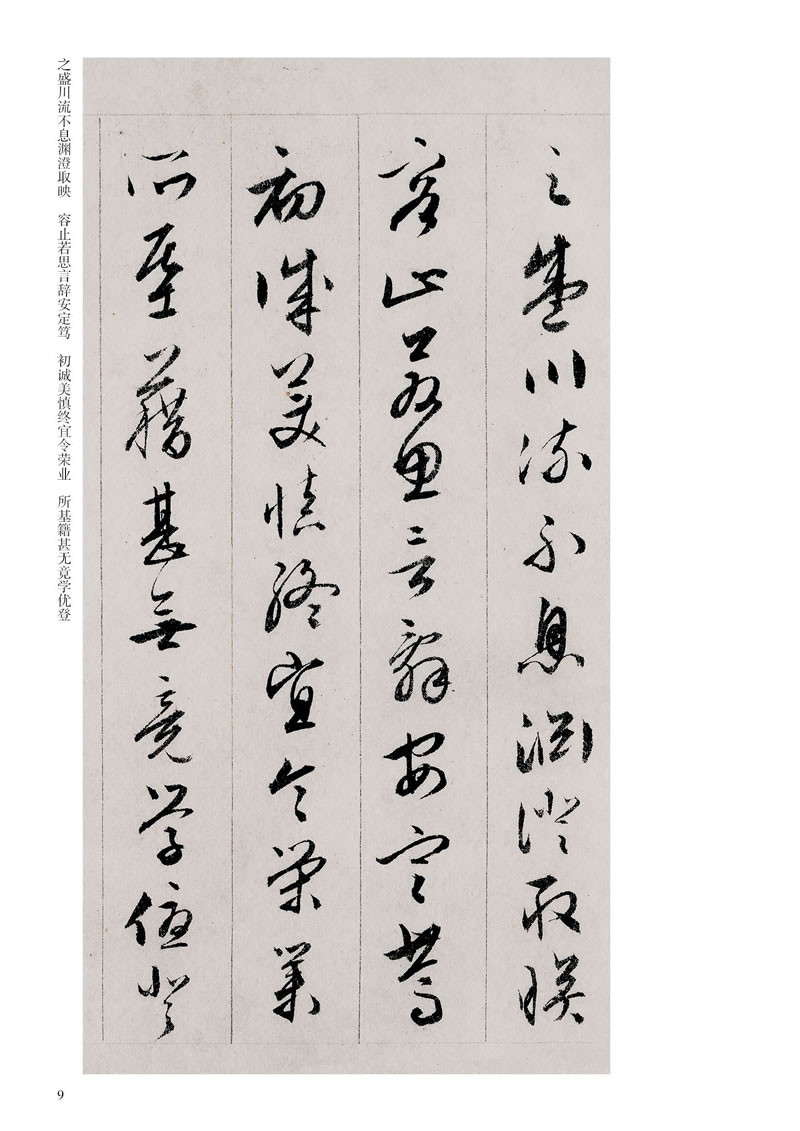 之盛川流不息渊澄取映
容止若思言辞安定笃
初诚美慎终宜令荣业
所基籍甚无竟学优登
之盛川流不息渊澄取映　容止若思言辞安定笃　初诚美慎终宜令荣业　所基籍甚无竟学优登
9